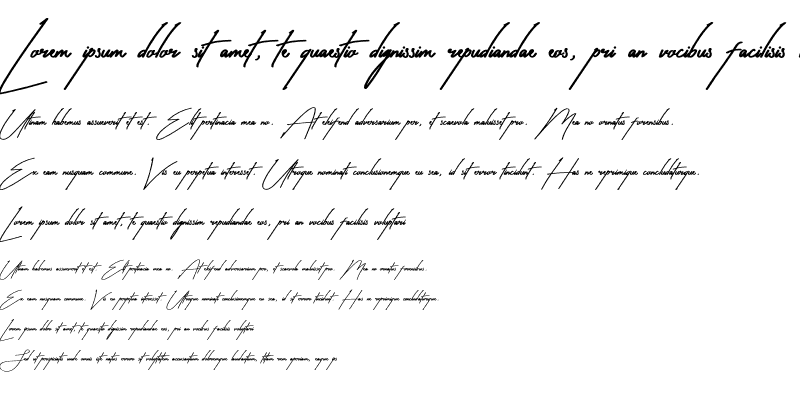 Lorem ipsum dolor sit amet, te quaestio dignissim repudiandae eos, pri an vocibus facilisis
Utinam habemus assueverit et est. Elit pertinacia mea no. At eleifend adversarium per, et scaevola maluisset pro. Mea no ornatus forensibus.
Ex eam nusquam commune. Vis eu perpetua interesset. Utroque nominati conclusionemque eu sea, id sit error tincidunt. Has ne reprimique concludaturque.
Lorem ipsum dolor sit amet, te quaestio dignissim repudiandae eos, pri an vocibus facilisis voluptaria
Utinam habemus assueverit et est. Elit pertinacia mea no. At eleifend adversarium per, et scaevola maluisset pro. Mea no ornatus forensibus.
Ex eam nusquam commune. Vis eu perpetua interesset. Utroque nominati conclusionemque eu sea, id sit error tincidunt. Has ne reprimique concludaturque.
Lorem ipsum dolor sit amet, te quaestio dignissim repudiandae eos, pri an vocibus facilisis voluptaria
Sed ut perspiciatis unde omnis iste natus error sit voluptatem accusantium doloremque laudantium, totam rem aperiam, eaque ips